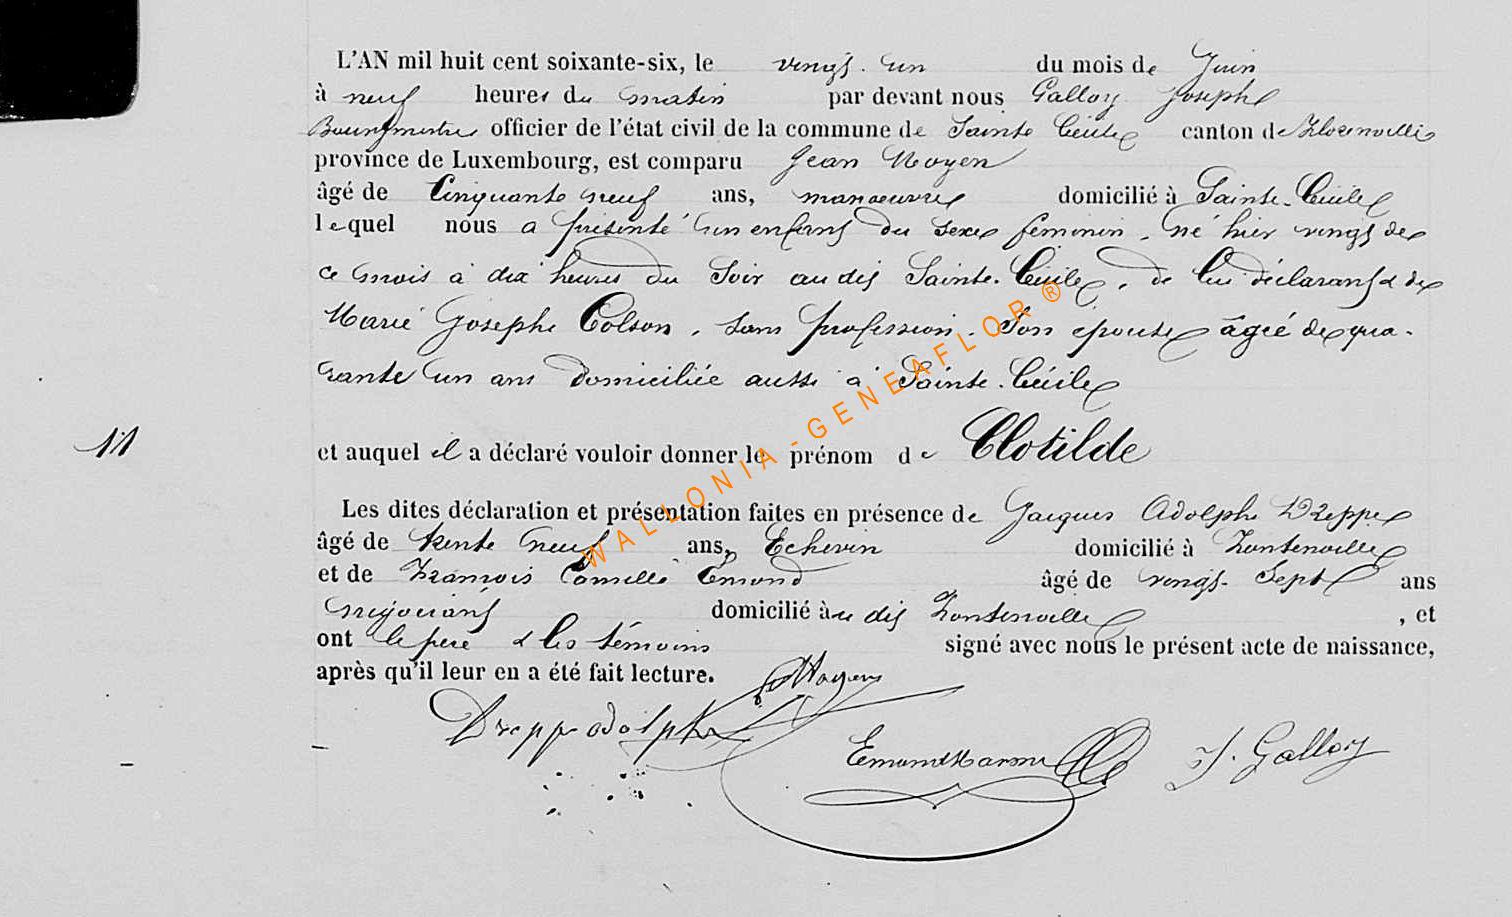 L'AN mil huit cent soixante-six, le vingt un du mois de Juin
à neuf heures du matin par devant nous Galloy Joseph
Bourgmestre officier de l'état civil de la commune de Sainte Cécile canton de Florenville
province de Luxembourg, est comparu Jean Noyen
âgé de Cinquante neuf ans, manoeuvre domicilié à Sainte-Cécile
lequel nous a présenté un enfant du sexe féminin, né hier vingt de
ce mois à dix heures du Soir au dit Sainte-Cécile, de lui déclarant & de
Marie Josephe Colson, sans profession, Son épouse âgée de qua-
rante un ans domiciliée aussi à Sainte-Cécile
11
et auquel il a déclaré vouloir donner le prénom de Clotilde
Les dites déclaration et présentation faites en présence de Jacques Adolphe Dreppe
âgé de trente neuf ans, Echevin domicilié à Fontenoille
et de François Camille Emond âgé de vingt-Sept ans
négociant domicilié àu dit Fontenoille , et
ont le père & les témoins signé avec nous le présent acte de naissance,
après qu'il leur en a été fait lecture.
Noyen
Drepp adolphe
J. Galloy
WALLONIA-GENEAFLOR ®